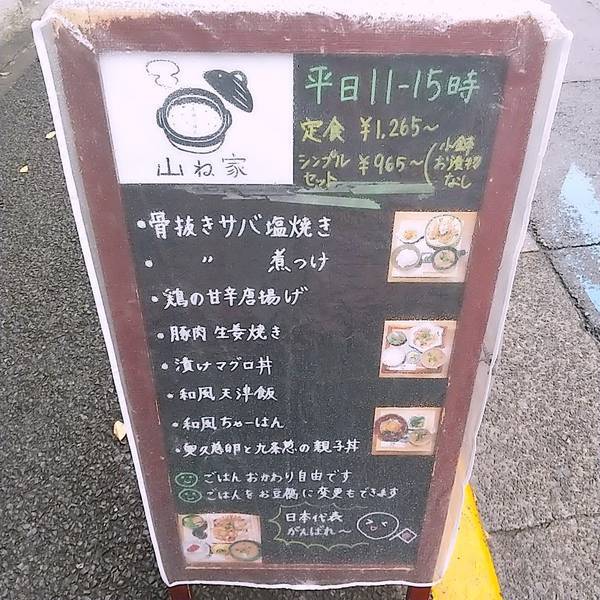 山ね家
平日11-15時
定食 ¥1,265~
シンプルセット ¥965~(小鉢お漬物なし)
・骨抜きサバ塩焼き
・ 〃 煮つけ
・鶏の甘辛唐揚げ
・豚肉生姜焼き
・漬けマグロ丼
・和風天津飯
・和風ちゃーはん
・奥久慈卵と九条葱の親子丼
ごはんおかわり自由です
ごはんをお豆腐に変更もできます
日本代表
がんばれ~